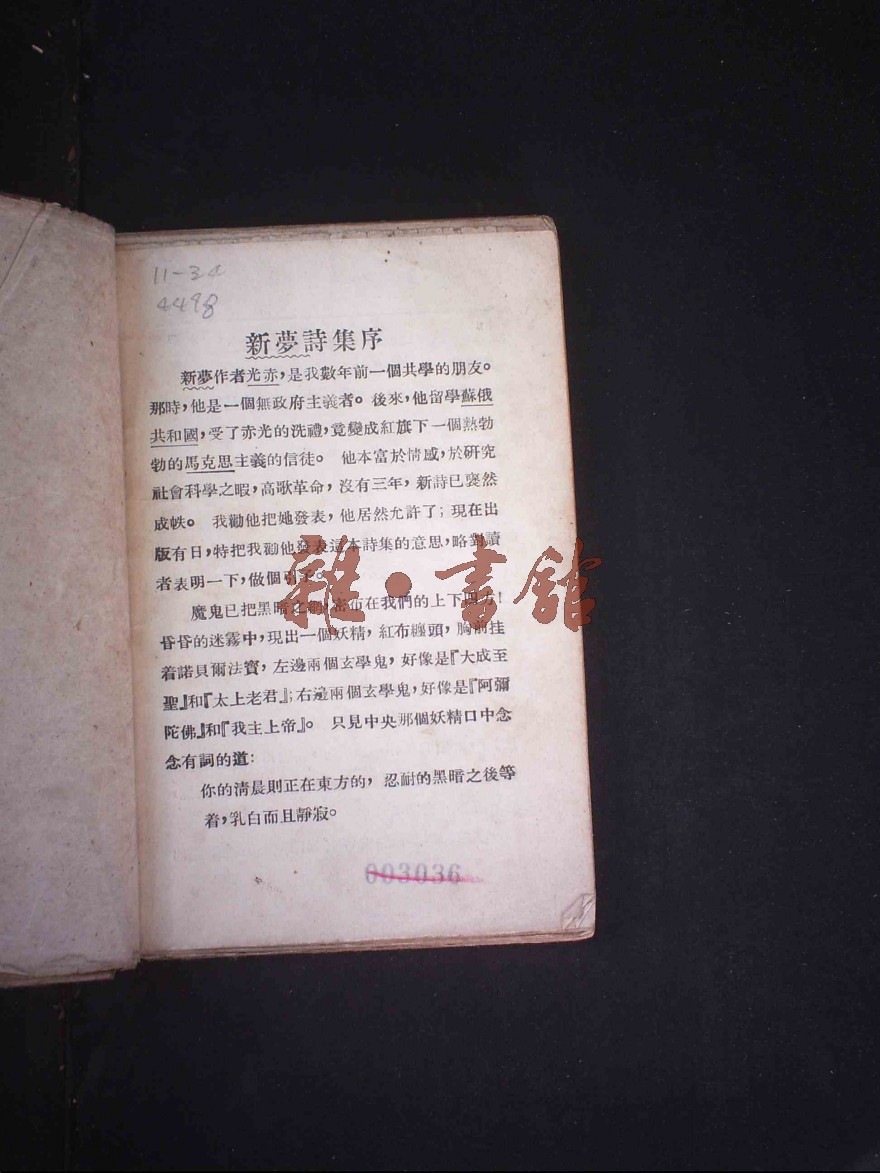 11-34
4498
新夢詩集序
新夢作者光赤，是我數年前一個共學的朋友。
那時，他是一個無政府主義者。後來，他留學蘇俄
共和國，受了赤光的洗禮，竟變成紅旗下一個熱勃
勃的馬克思主義的信徒。他本富於情感，於研究
社會科學之暇，高歌革命，沒有三年，新詩已裒然
成帙。我勸他把她發表，他居然允許了；現在出
版有日，特把我勸他發表這本詩集的意思，略對讀
者表明一下，做個引子。
魔鬼已把黑暗之網，密布在我們的上下四方！
昏昏的迷霧中，現出一個妖精，紅布纏頭，胸前挂
着諾貝爾法寶，左邊兩個玄學鬼，好像是『大成至
聖』和『太上老君』；右邊兩個玄學鬼，好像是『阿彌
陀佛』和『我主上帝』。只見中央那個妖精口中念
念有詞的道：
你的淸晨則正在東方的，忍耐的黑暗之後等
着，乳白而且靜寂。
003036
雜·書館